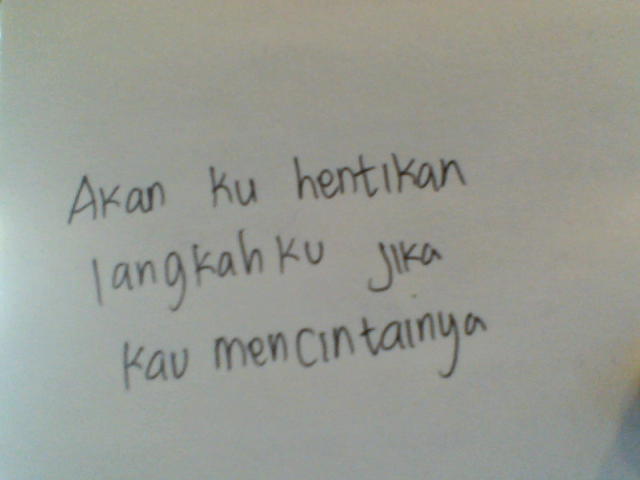 Akan ku hentikan
langkahku jika
kau mencintainya